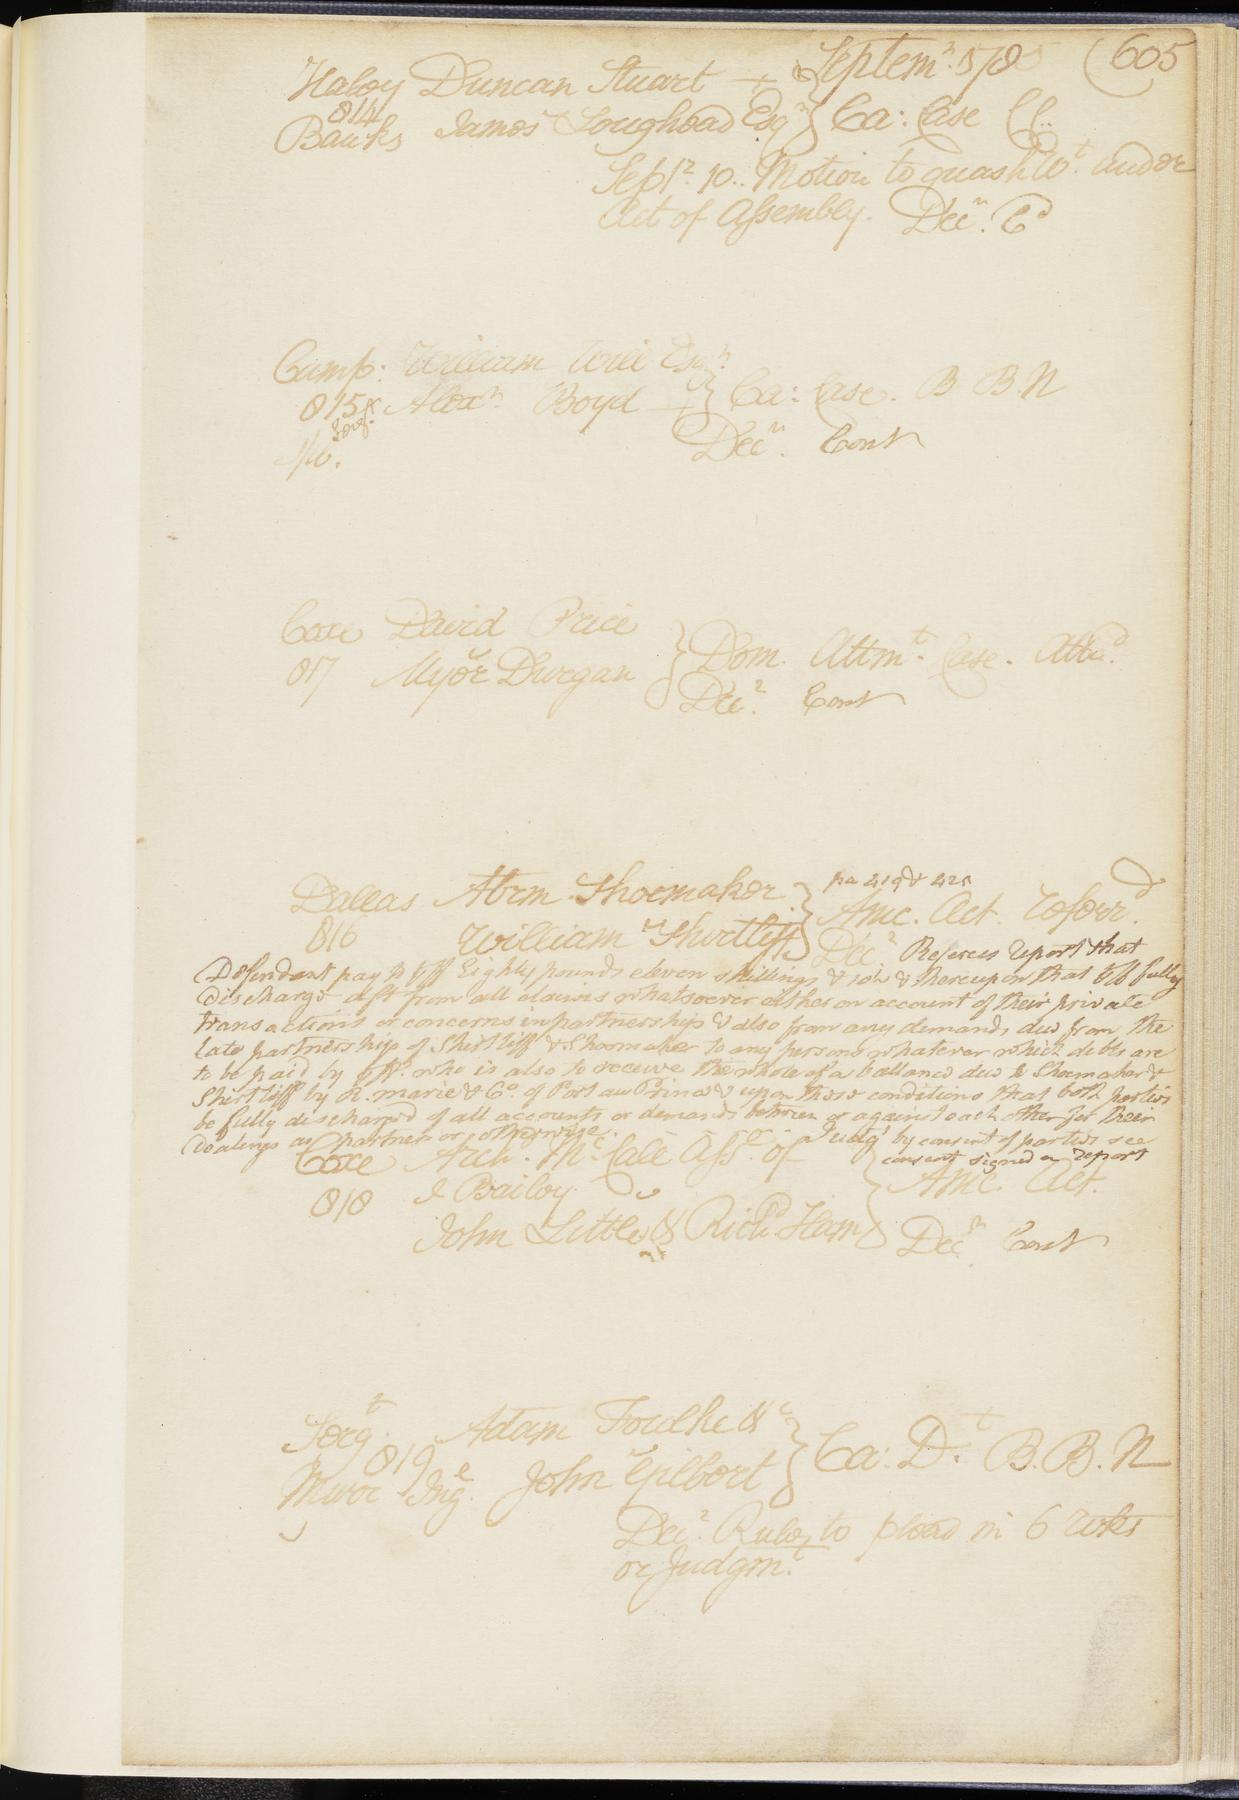 Septemr. 178 (605
Haley Duncan Stuart +
814
Banks James Loughead Esqr } Ca: Case CC..
Sepr. 10.. Motion to quash Wt. under
Act of Assembly. Decr. Cd
Camp: William Will Esqr.
815 Alexr. Boyd + } Ca: Case. B B. N
Decr. Cont
Coxe David Price
817 Myer Durgan } Dom. Attmt. Case. Attad.
Decr. Cont
pa 419 &
Dallas Abrm Shoemaker } Amc. Act. Referrd.
816 William Shirtliff Decr. Referees report that
Defendant pay to plff Eighty pounds eleven shillings & & thereupon that plff fully
discharge deft from all claims whatsoever either on account of their private
transactions or concerns in partnership & also from any demands due from the
late partnership of Shirtliff & Shoemaker to any persons whatever which debts are
to be paid by plff. who is also to receive the whole of a ballance due to Shoemaker &
Shirtliff by R. marie & Co. of Port au Prince & upon these conditions that both parties
be fully discharged of all accounts or demands between or against each other for their
dealings as partners or otherwise. Judgt by consent of parties see
consent signed on report
Coxe Arch. Mc. Call Assee of
818 I Bailey } Amc. Act.
John Little & Richd. Ham Decr Cont
Sergt. Adam Foulke &c
819
Muroe Inge. John Gilbert } Ca: Dt. B. B. N
Decr. Rule to plead in 6 wks
or Judgmt.